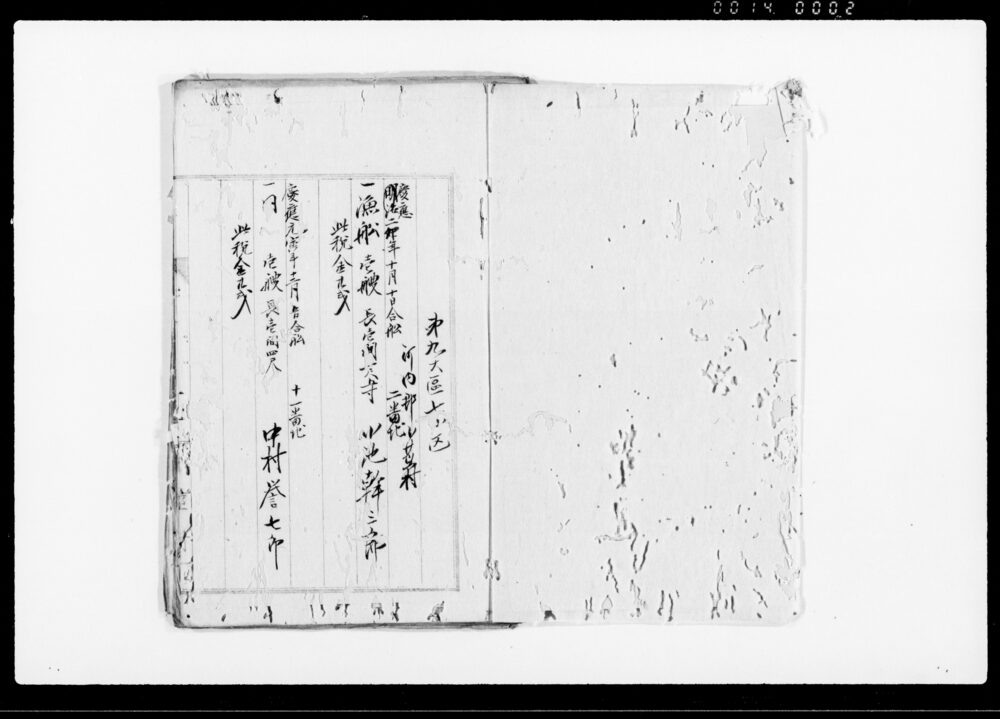 0014 0002
第九大區七小区
河内郡小茎村
慶應
明治二卯年十月十日合舩
二番地
一漁舩壱艘 長壱間 小池幹三郎
此税金
慶應元寅年十二月 合舩
十一番地
一同 壱艘 長壱間四尺 中村誉七郎
此税金